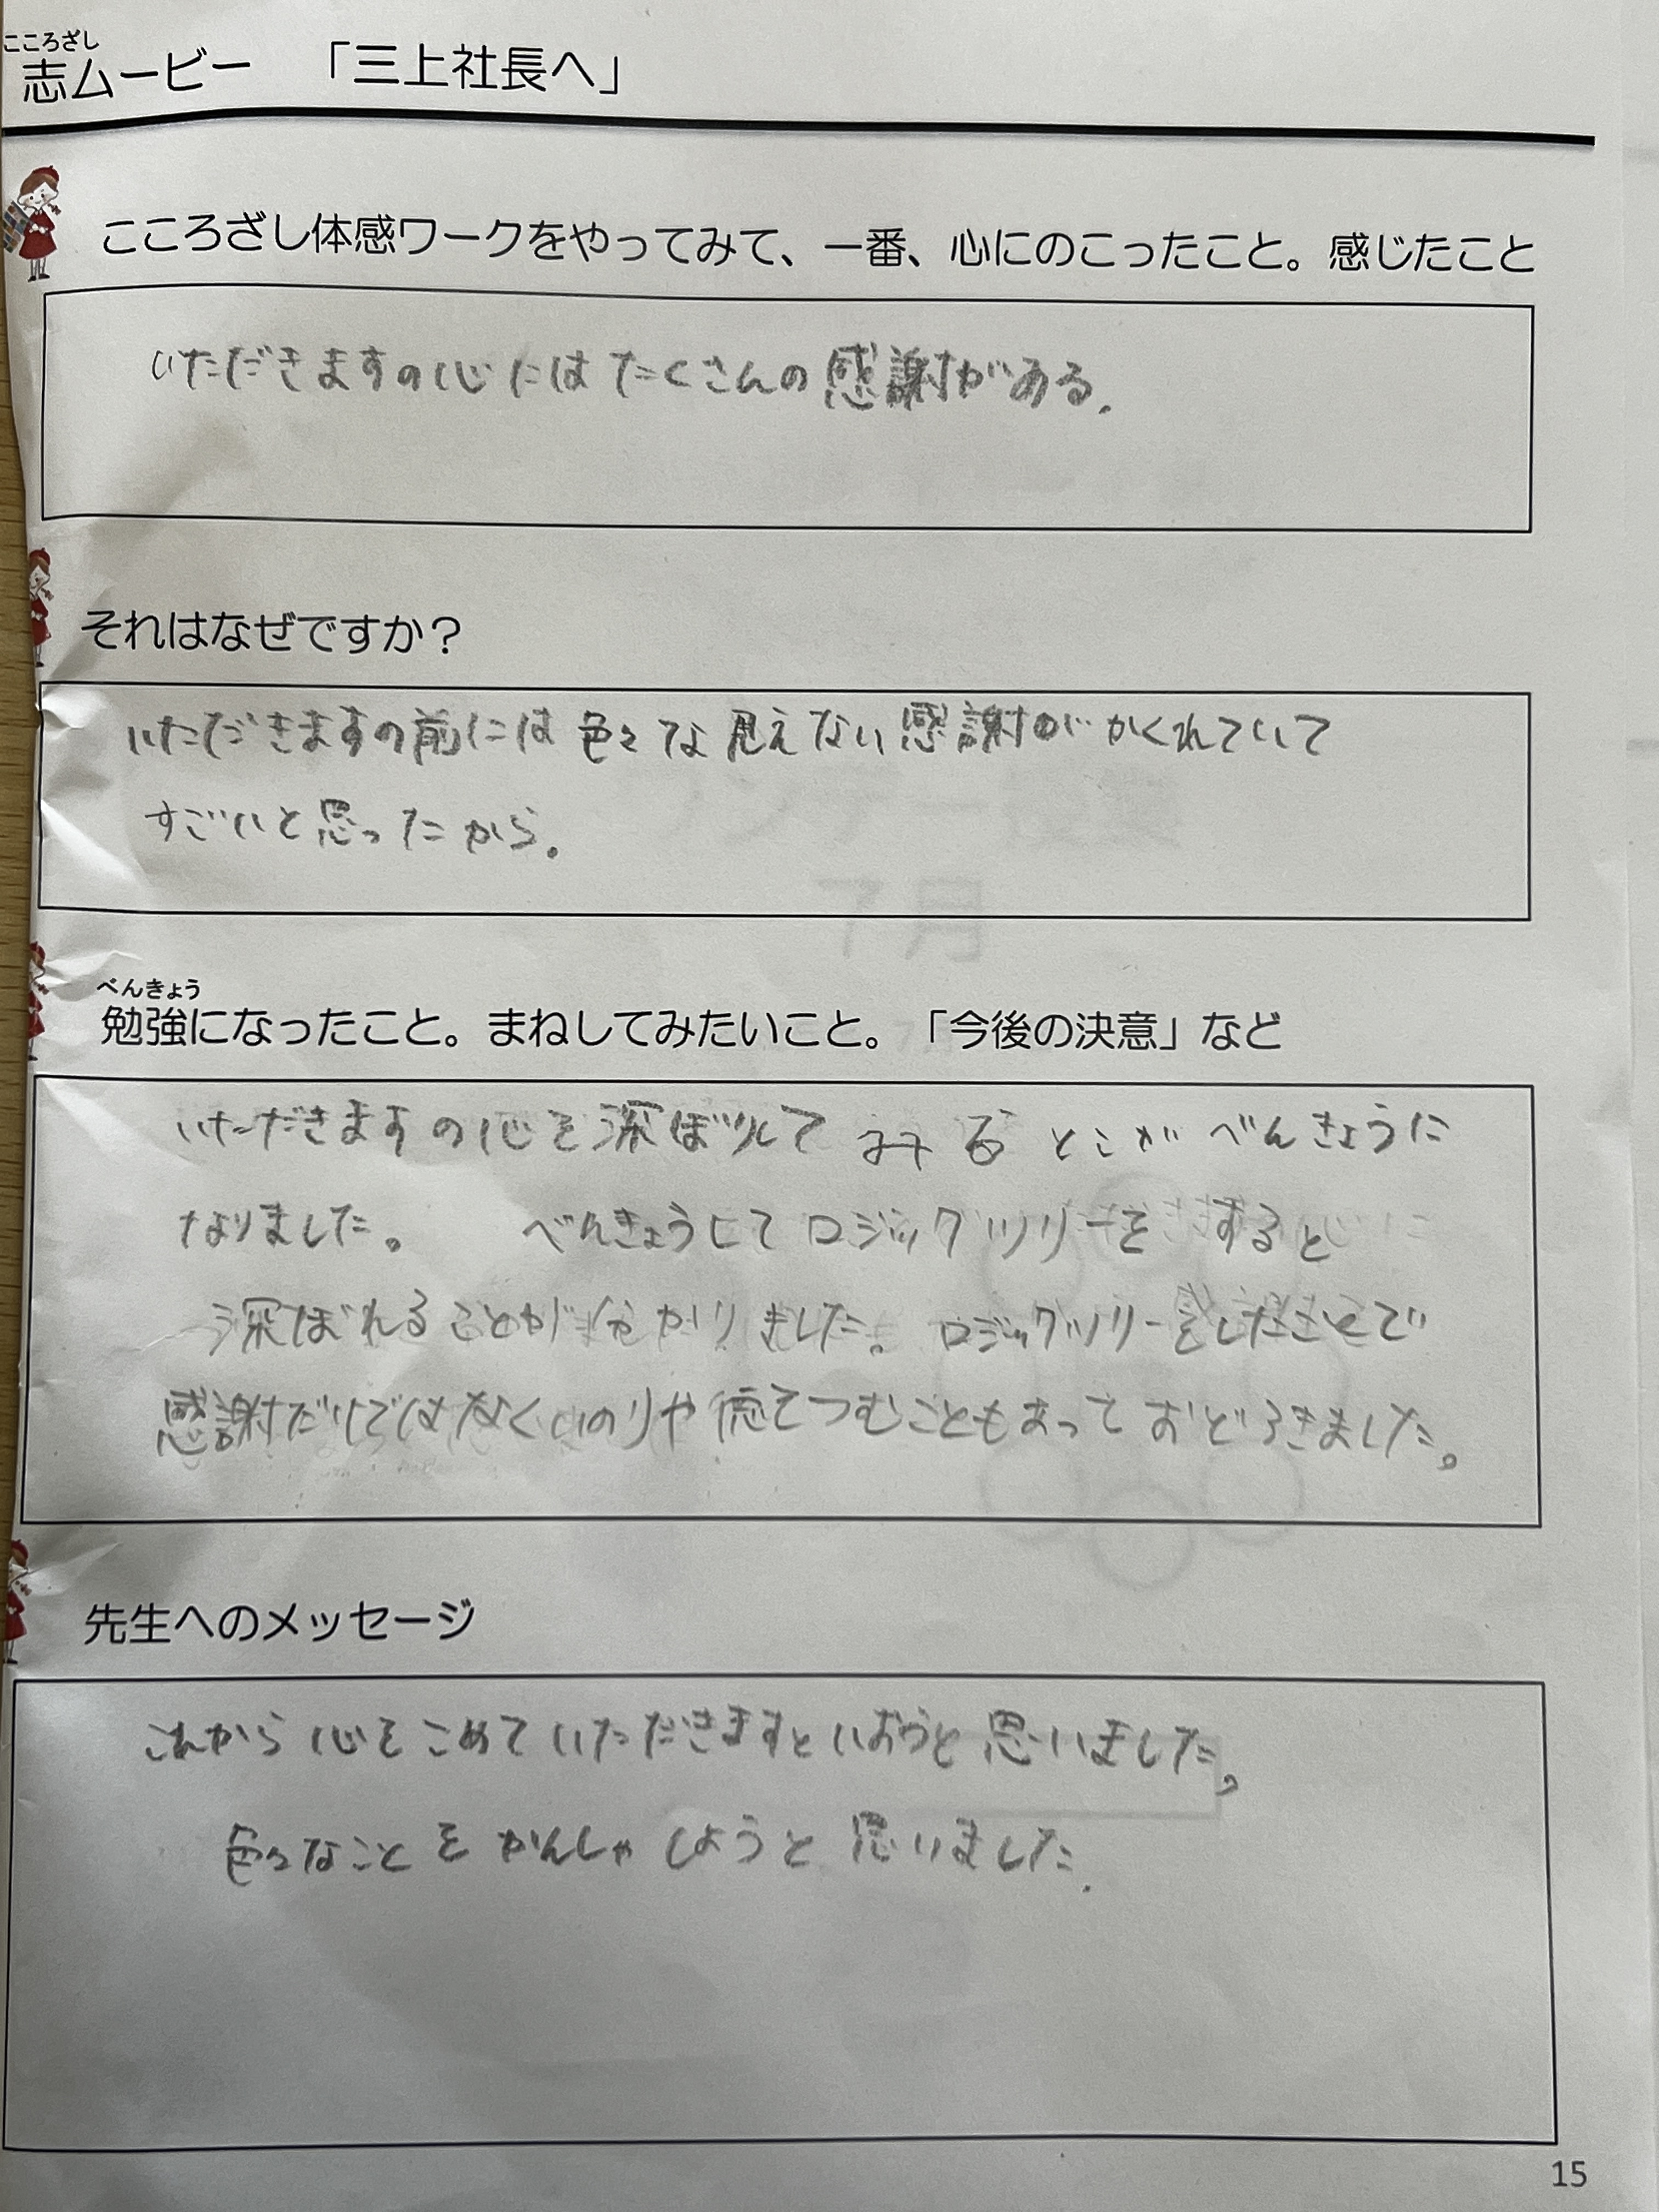 こころざし
志ムービー 「三上社長へ」
こころざし体感ワークをやってみて、一番、心にのこったこと。感じたこと
いただきますの心にはたくさんの感謝がある.
それはなぜですか？
いただきますの前には色々な見えない感謝がかくれていて
すごいと思ったから。
べんきょう
勉強になったこと。まねしてみたいこと。「今後の決意」など
いただきますの心を深ぼりしてみるとこがべんきょうに
なりました。 べんきょうにてロジックツリーをすると
深ぼれることが分かりました。ロジックツリーをしたことで
感謝だけではなくいのりや徳をつむこともあっておどろきました。
先生へのメッセージ
これから心をこめていただきますといおうと思いました。
色々なことをかんしゃしようと思いました.
7月
15